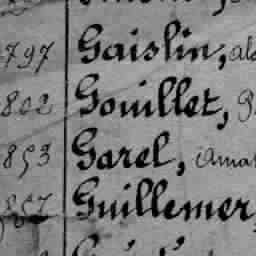 797 Gaislin,
802 Gouillet,
853 Garel, Amat
857 Guillemer,